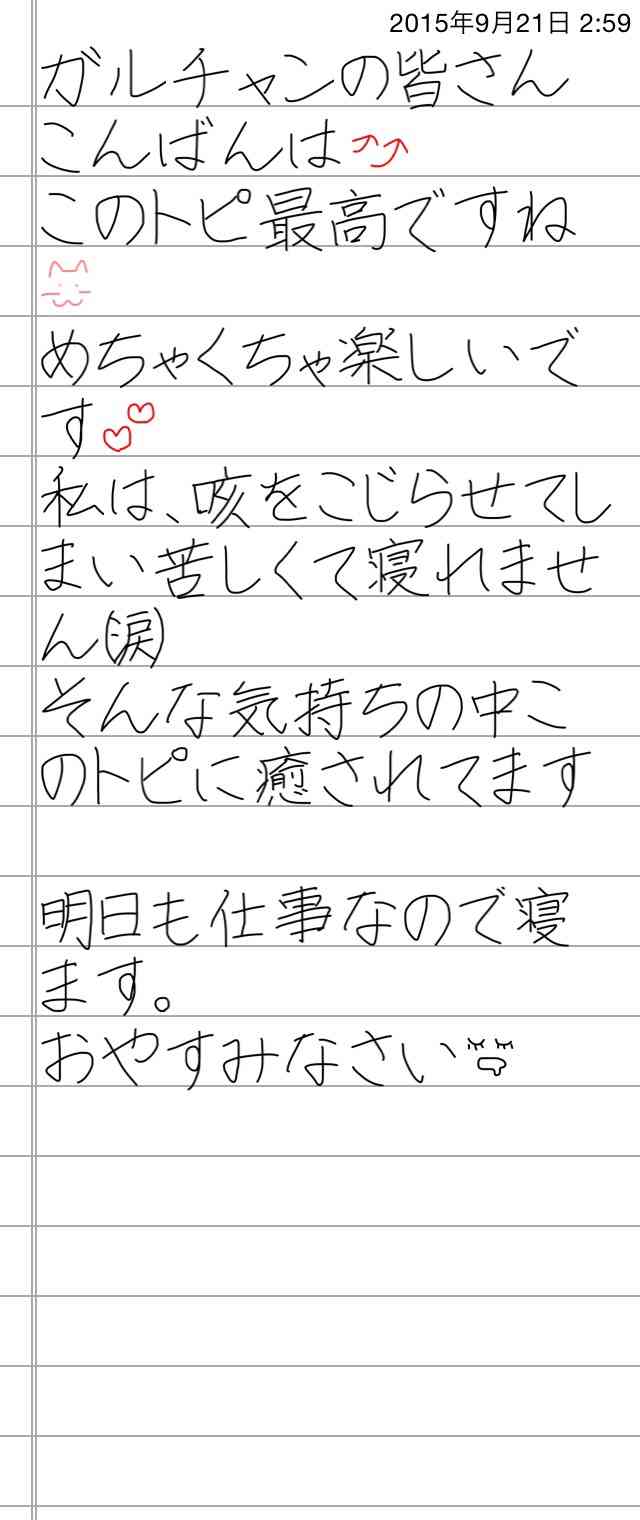 2015年9月21日 2:59
ガルチャンの皆さん
こんばんは⤴⤴
このトピ最高ですね
めちゃくちゃ楽しいで
す♡♡
私は、咳をこじらせてし
まい苦しくて寝れませ
ん(涙)
そんな気持ちの中こ
のトピに癒されてます
明日も仕事なので寝
ます。
おやすみなさい